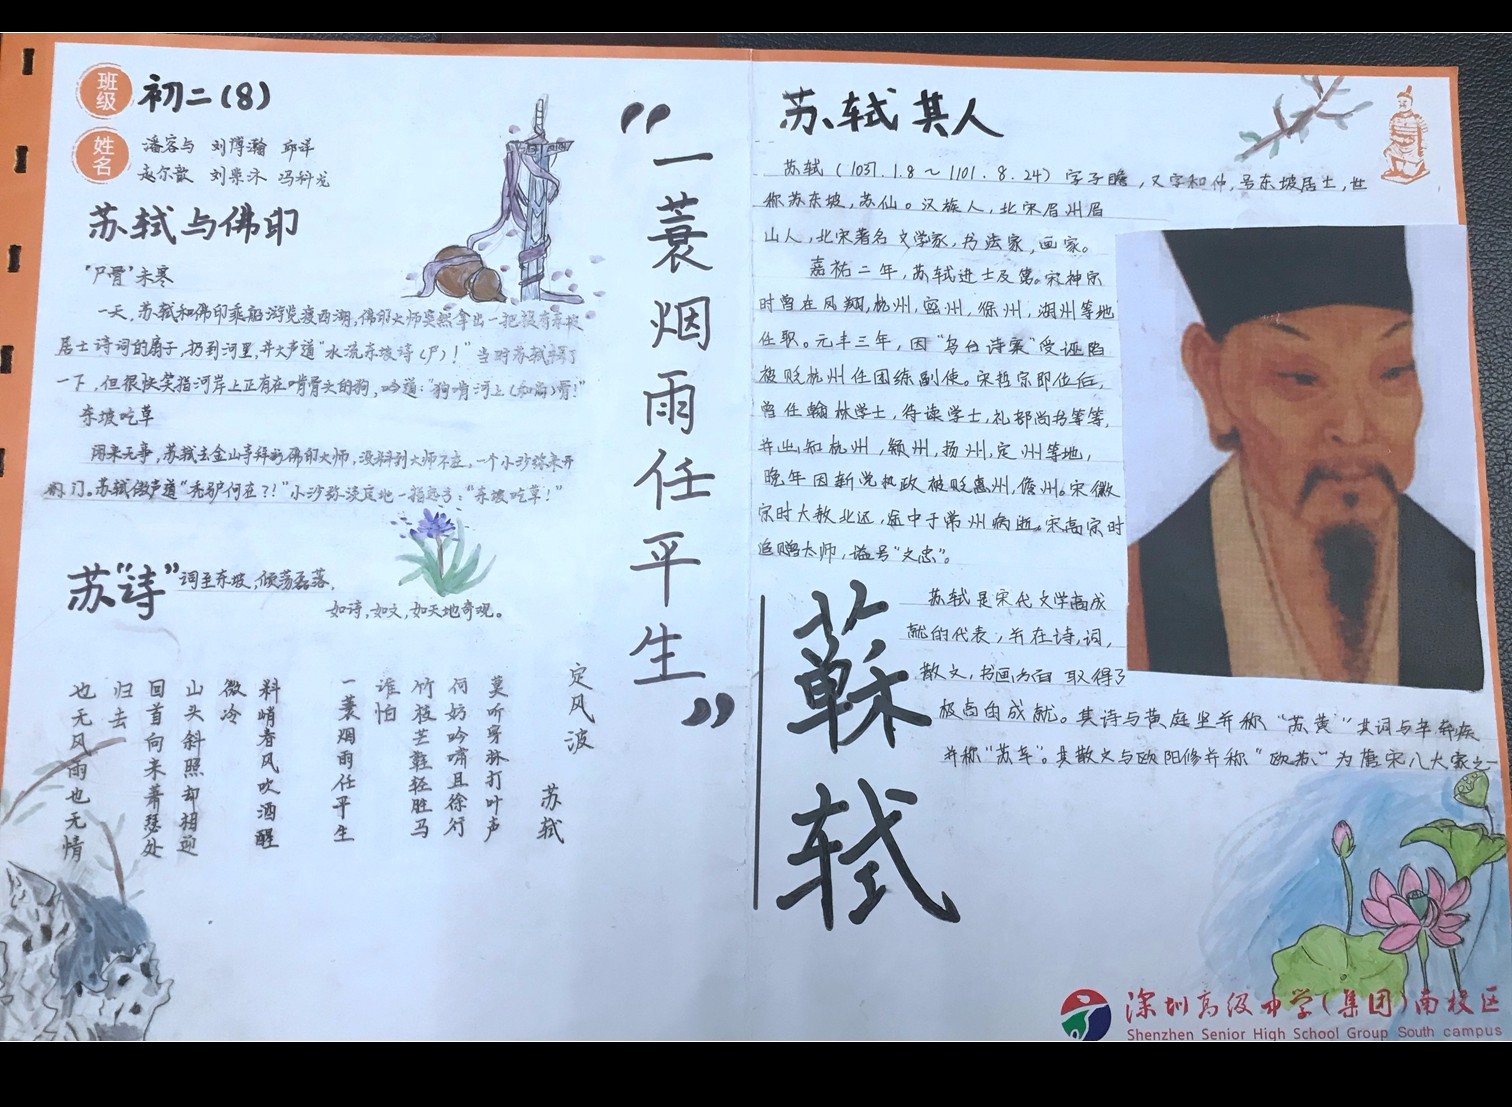 班级
初二(8)
姓名
苏轼与佛印
"尸骨"未寒
一天,苏轼和佛印乘船游览瘦西湖,佛印大师突然拿出一把提有东坡
居士诗词的扇子,扔到河里,并大声道"水流东坡诗(尸)!"当时苏轼
一下,但很快笑指河岸上正有在啃骨头的狗,吟道:"狗啃河上(和尚)骨!"
东坡吃草
闲来无事,苏轼去金山寺拜访佛印大师,没料到大师不在,一个小沙弥来开
门。苏轼傲声道"秃驴何在?!"小沙弥淡定地一指远方:"东坡吃草!"
苏"诗"
词至东坡,倾荡磊落,
如诗,如文,如天地奇观。
定风波
苏轼
莫听穿林打叶声
何妨吟啸且徐行
竹枝芒鞋轻胜马
谁怕
一蓑烟雨任平生
料峭春风吹酒醒
微冷
山头斜照却相迎
回首向来萧瑟处
归去
也无风雨也无情
"一蓑烟雨任平生"
苏轼其人
苏轼(1037.1.8~1101.8.24)字子瞻,又字和仲,号东坡居士,世
称苏东坡,苏仙。汉族人,北宋眉州眉
山人,北宋著名文学家,书法家,画家。
嘉祐二年,苏轼进士及第。宋神宗
时曾在凤翔,杭州,密州,徐州,湖州等地
任职。元丰三年,因"乌台诗案"受诬陷
被贬杭州任团练副使。宋哲宗即位后,
曾任翰林学士,侍读学士,礼部尚书等等,
并出知杭州,颍州,扬州,定州等地,
晚年因新党执政被贬惠州,儋州。宋徽
宗时大赦北还,途中于常州病逝。宋高宗时
追赠太师,谥号"文忠"。
苏轼是宋代文学高成
就的代表,并在诗,词,
散文,书画方面取得了
极高的成就。其诗与黄庭坚并称"苏黄"其词与辛弃疾
并称"苏辛"。其散文与欧阳修并称"欧苏"为唐宋八大家之一
蘇轼
深圳高级中学(集团)南校区
Shenzhen Senior High School Group South campus